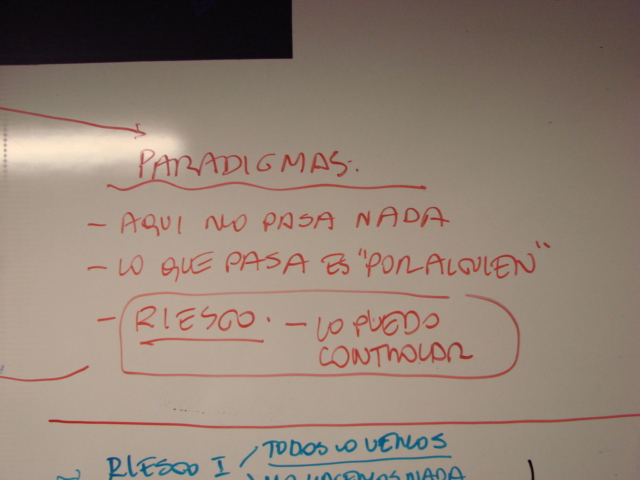 PARADIGMAS.
- AQUI NO PASA NADA
- LO QUE PASA ES "POR ALGUIEN"
- RIESGO. - LO PUEDO
CONTROLAR
RIESGO I / TODOS LO VEMOS
NO HACEMOS NADA